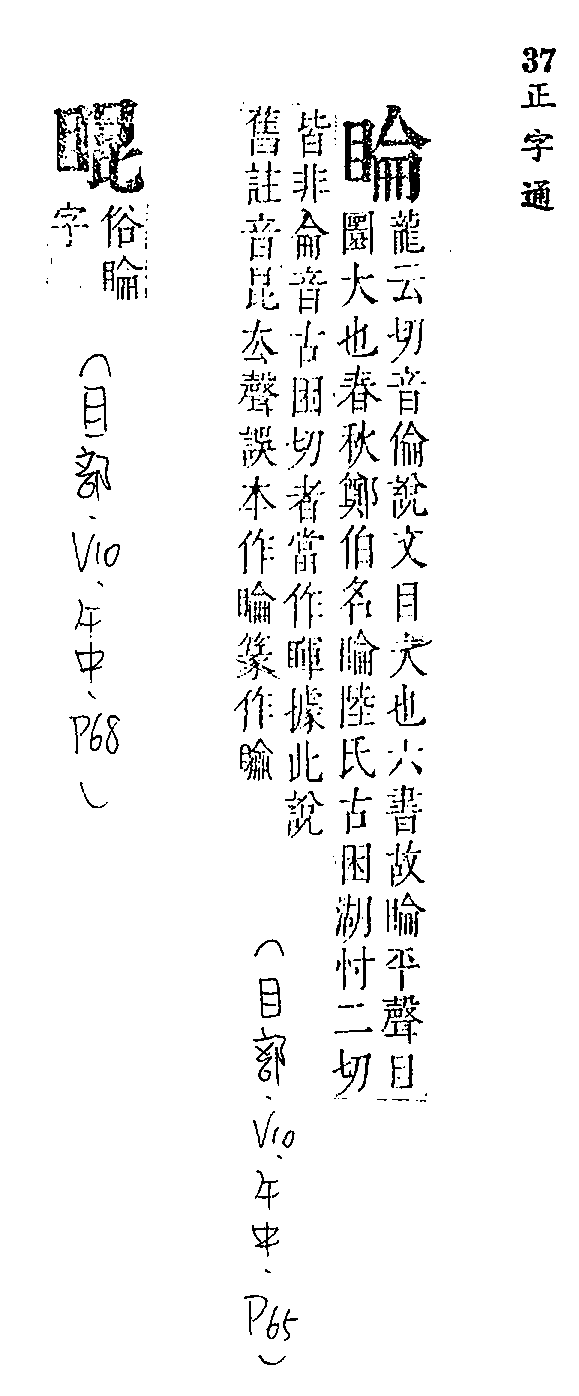 37正字通
睔
龍云切音倫說文目大也六書故睔平聲目
圜大也春秋鄭伯名睔陸氏古困湖忖二切
皆非侖音古困切者當作睴據此說
舊註音昆去聲誤本作睔篆作睔
(目部、V10、午中、P65)
睴
俗睔
字
(目部、V10、午中、P68)